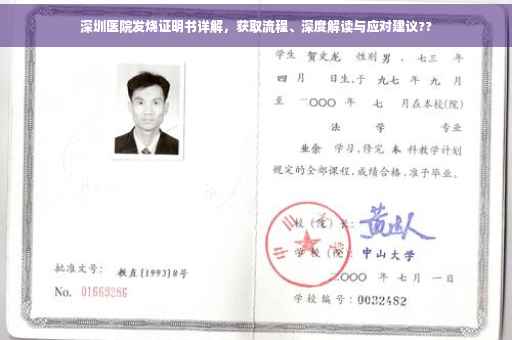 深圳医院发烧证明书详解，获取流程、深度解读与应对建议??
学生 贺文龙 性别 男，七三 年
四 月 日生，于 九七 年 九 月
至 二〇〇〇 年 七 月在本校(院)
法 学 专业
业余 学习，修完 本 科教学计划
规定的全部课程，成绩合格，准予毕业。
校(院)长：
学 校(院)：中山大学
二〇〇〇 年 七 月 一 日
学校编号：0032482
批准文号：教直[1993]8号
No. 01669286